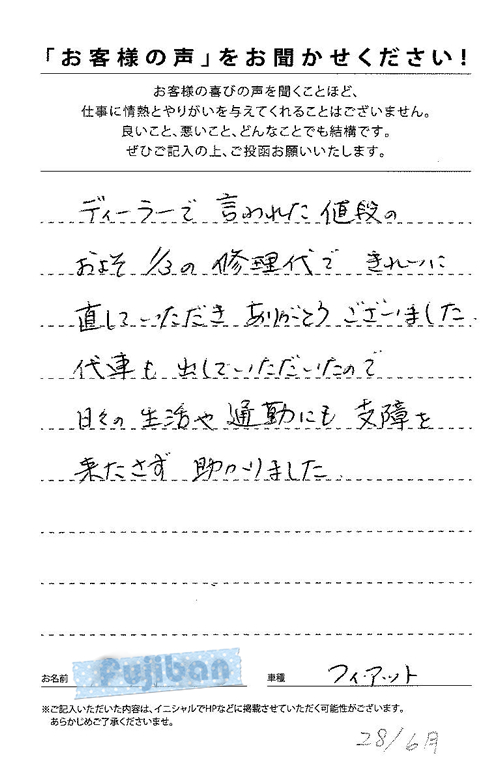 「お客様の声」をお聞かせください!
お客様の喜びの声を聞くことほど、
仕事に情熱とやりがいを与えてくれることはございません。
良いこと、悪いこと、どんなことでも結構です。
ぜひご記入の上、ご投函お願いいたします。
ディーラーで 言われた 値段の
およそ 1/3の 修理代で きれーいに
直していただき ありがとうございました.
代車も 出していただいたので
日々の 生活や 通勤にも 支障を
来たさず 助かりました.
お名前 fujiban 車種 フィアット
※ご記入いただいた内容は、イニシャルでHPなどに掲載させていただく可能性がございます。
あらかじめご了承くださいませ。
28/6月